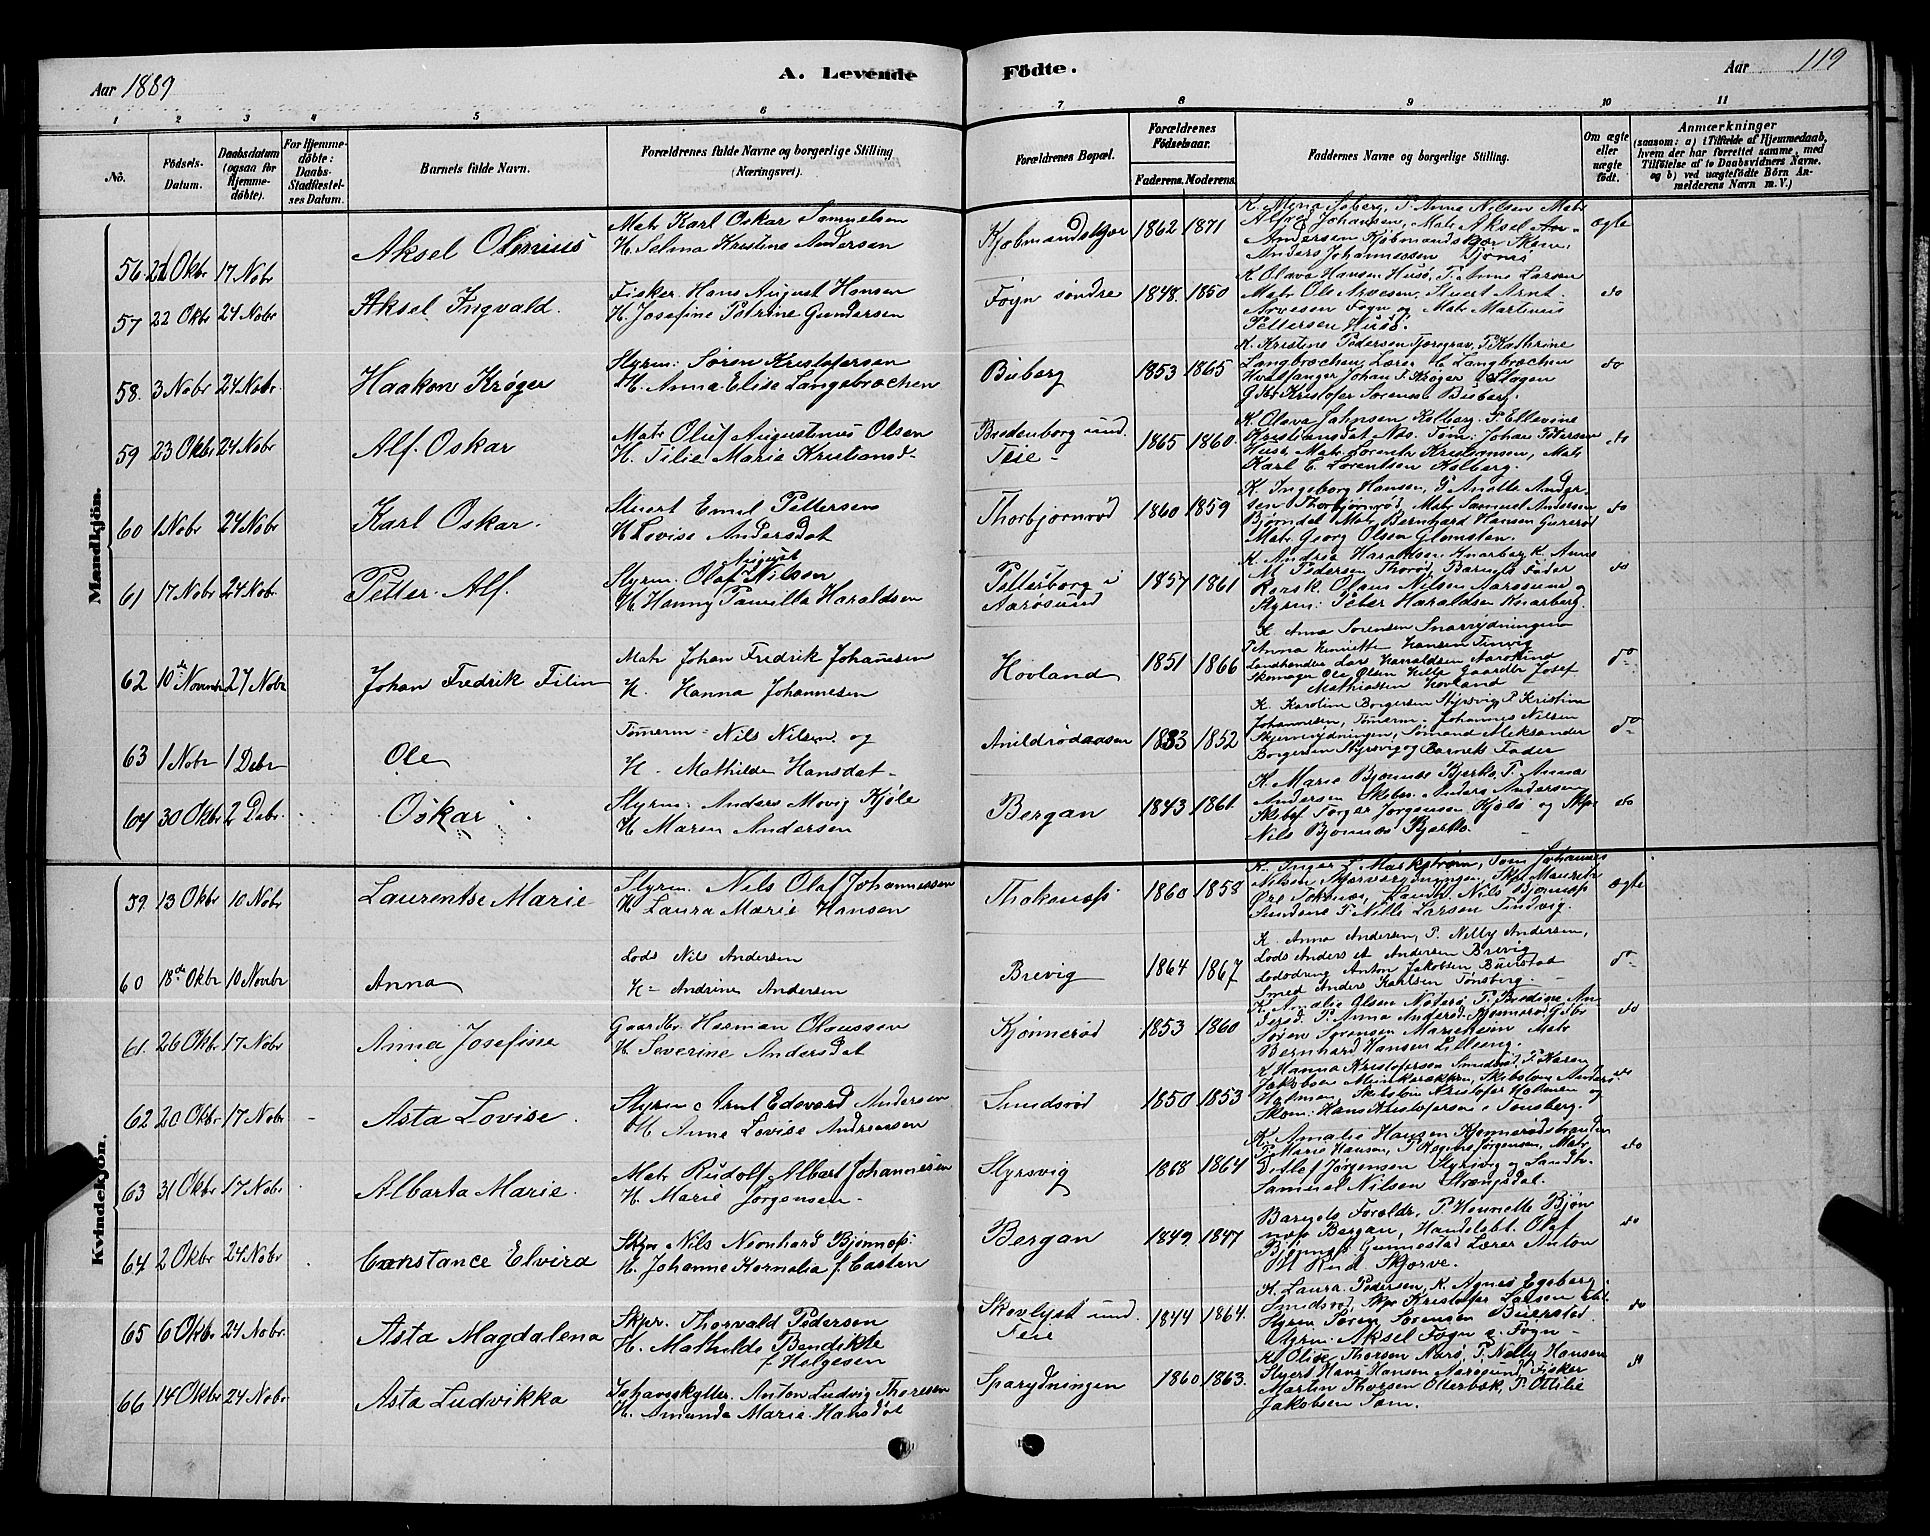 Aar 1889
A. Levende
Fødte.
Aar
119
1 2 3 4 5 6 7 8 9 10 11
No.
Fødsels-Datum.
Daabsdatum (ogsaa for Hjemmedøbte).
For Hjemmedøbte: Daabs-Stadfestelses Datum.
Barnets fulde Navn.
Forældrenes fulde Navne og borgerlige Stilling (Næringsvei).
Forældrenes Bopæl.
Forældrenes Fødselsaar.
Faderens. Moderens.
Faddernes Navne og borgerlige Stilling.
Om ægte eller uægte født.
Anmærkninger
(saasom: a) i Tilfælde af Hjemmedaab, hvem der har forrettet samme, med Tilføielse af to Daabsvidners Navne. og b) ved uægtefødte Børn Anmelderens Navn m. V.)
Mandkjön.
56 Okbr 17 Nobr Aksel Olenius
Matr Karl Oskar Samuelsen
H. Selma Kristine Andersen
Kjøbmandskjær 1862 1871
K. Mina Soberg, P. Anna Nilsen Matr
Alfred Johansen, Matr Aksel
Andersen Kjøbmandskjær
Anders Johannessen Tjømø
ægte
57 22 Okbr 24 Nobr Aksel Ingvald.
Fisker Hans August Hansen
H. Josefine Petrine Gundersen
Føyn søndre 1848. 1850
K. Olava Hansen Husø, P. Anne Larsen
Matr Ole Arvesen, Stuert Arnt
Arvesen Føyn og Matr Martinius
Pettersen Husø.
do
58. 3 Nobr 24 Nobr. Haakon Krøger
Styrm: Søren Kristofersen
H. Anna Elise Langebrechen
Buberg 1853 1865
K. Kristine Pedersen P. Kathrine
Hvalfanger Johan F. Krøger Slagen
Gbr Kristofer Sørensen Buberg.
do
59 23 Okbr 24 Nobr Alf Oskar
Matr Oluf Augustenius Olsen
H. Tilie Marie Kristiansd-
Bredenborg und. Teie- 1865 1860.
K. Olava Kolberg. P. Ellevine
Kristiansdat Tøm: Johan Petersen
Husø, Matr Lorentz Kristiansen, Matr
Karl E. Lorentsen Kolberg.
do
60 1 Nobr 24 Nobr Karl Oskar.
Stuert Emil Pettersen
H Lovise Andersdat
Thorbjørnrød 1860 1859
K. Ingeborg Hansen, P. Anette Anders-
sen Thorbjørnrød, Matr Samuel Andersen
Bjørndal Matr Bernhard Hansen
Matr. Georg Olsen Glomsten.
do
61 17 Nobr 24 Nobr. Petter Alf.
August
Styrm. Olaf Nilsen
H. Hanny Pamilla Haraldsen
Pettersborg i Aarøsund 1857 1861
K. Andrea Haraldsen Knarberg K. Anne
M. Pedersen Thorød, Barnets Fader
Olaus Nilsen Aarøsund og
Styrm: Peter Haraldsen Knarberg.
do
62 10de Novembr 27 Nobr Johan Fredrik Filin
Matr Johan Fredrik Johansen
H. Hanna Johannesen
Hovland 1851 1866
K. Anna Sørensen Snarrydningen
P. Anna Henriette Hansen Tinvig
Landhandler Lars Harraldsen Aarøsund
Skomager Ole Olsen Hille Gaarder Josef
Mathiassen Hovland
do-
63 1 Nobr 1 Debr Ole
Tømerm- Nils Nilsen og
H. Mathilde Hansdat-
Anildrødaasen 1852
K. Karoline Borgersen Styrsvig P. Kristine
Johannesen, Tømerm- Johannes Nilsen
Skjerverydningen, Sømand Aleksander
Borgersen Styrsvig og Barnets Fader
do-
64 30 Okbr 2 Debr. Oskar
Styrm: Anders Movig Kjøle
H Maren Andersen
Bergan 1843 1861.
K. Marie Bjønnes Bjerkø, P. Anna
Andersen Anders Andersen
Jørgensen Kjøle og Skpr
Nils Bjønnes Bjerkø.
do
Kvindekjön.
59. 13 Okbr 10 Nobr Laurentse Marie
Styrm. Nils Olaf Johannessen
H Laura Marie Hansen
Thokenæs 1860 1858
K. Inger L. Markstrøm, Tøm Johannes
Nilsen Skjerverydningen, Skpr
Landh. Nils Bjønnæs
Sundene P. Nille Larsen Tindvig.
ægte
60 18de Okbr 10 Novbr Anna
Lods Nils Andersen
H- Andrine Andersen
Brevig 1864 1867
K. Anna Andersen, P. Nelly Andersen,
Lods Anders Andersen Brevig
Lodsdreng Anton Jakobsen Buerstad
Smed Anders Karlsen Tønsberg-
do-
61. 26 Okbr. 17 Nobr Anna Josefine
Gaardbr. Herman Olaussen
H. Severine Andersdat
Kjønnerød 1853 1860
K. Amalie Olsen Nøterø, P. Bredine An-
dersd. P. Anna Andersd. Kjønnerød Gbr
Søren Sørensen Marieheim Matr
Bernhard Hansen Lilleeng.
do
62 20 Okbr 17 Nobr Asta Lovise.
Styrm: Arnt Edevard Andersen
H. Anne Lovise Andreassen
Smidsrød 1850 1853
K Hanna Kristofersen Smidsrød, P. Karen
Jakobsen Munkerækken, Skibstøm Anders
Holmen, Skibstøm Kristofer Holmen og
Skom: Hans Kristofersen i Tønsberg.
do
63 31 Okbr 17 Nobr. Albarta Marie.
Matr Rudolf Albart Johannesen
H. Marie Jørgensen-
Styrsvig 1868 1864
K. Amalie Hansen Kjønnerød
P. Marie Hansen, P. Regine Jørgensen, Matr
Ditlef Jørgensen Styrsvig og Landh.
Samuel Nilsen Strengsdal.
do
64 2 Okbr 24 Nobr. Constance Elvira
Skpr Nils Neonhard Bjønnæs
H. Johanne Kornelia f. Casten
Bergan 1849 1847
Barnets Foreldr, P. Henriette Bjøn
næs Bergan, Handelsbt. Olaf
Bjønnæs Gunnestad Lærer Anton
M Ruud Skjerve.
do
65 6 Okbr 24 Nobr. Asta Magdalena
Skpr. Thorvald Pedersen
H. Mathilde Bendikte
f. Helgesen
Skovlyst und. Teie 1844 1864.
K. Laura Pedersen, K. Agnes Egeberg
Smidsrød, Skpr Kristofer Larsen
Styrm Søren Sørensen Buerstad
Styrm: Aksel Føyn s. Føyn-
do
66 14 Okbr 24 Nobr Asta Ludvikka
Ishavsskytter. Anton Ludvig Thoresen
H. Amunda Marie Hansdat
Sparydningen 1860 1863.
K. Olise Thorsen Narø, P. Nelly Hansen
Stuert Hans Hansen Aarøsund Fisker
Martin Thorsen Oterbæk, P. Otilie
Jakobsen Søm.
do